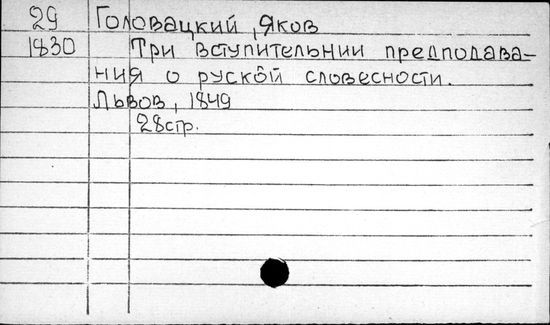 29 Головацкий, Яков
1830 Три вступительнии предподава-
ния о руско̂й словесности.
Львов, 1849
28стр.